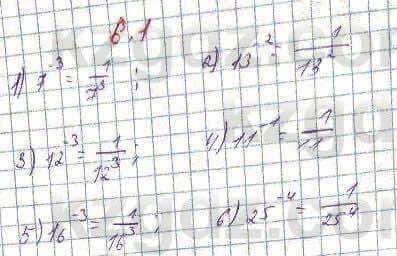 6.1
1) 7^-3 = 1/7^3 ;
2) 13^-2 = 1/13^2
3) 12^-3 = 1/12^3 ;
4) 11^-1 = 1/11
5) 16^-3 = 1/16^3 ;
6) 25^-4 = 1/25^4